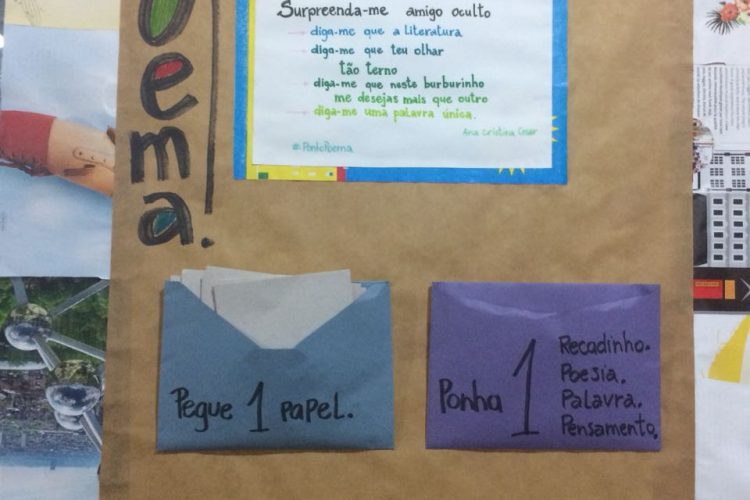 oema.
Surpreenda-me amigo oculto
diga-me que a literatura
diga-me que teu olhar
tão terno
diga-me que neste burburinho
me desejas mais que outro
diga-me uma palavra única.
Ana Cristina Cesar
#PontoPoema
Pegue 1 papel.
Ponha 1
Recadinho.
Poesia.
Palavra.
Pensamento.